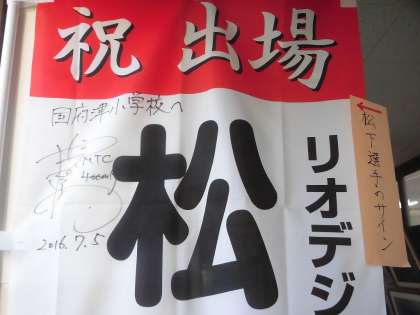 祝 出場
国府津小学校へ
MTC
400mH
2016.7.5
松
リオデジ
松下選手のサイン